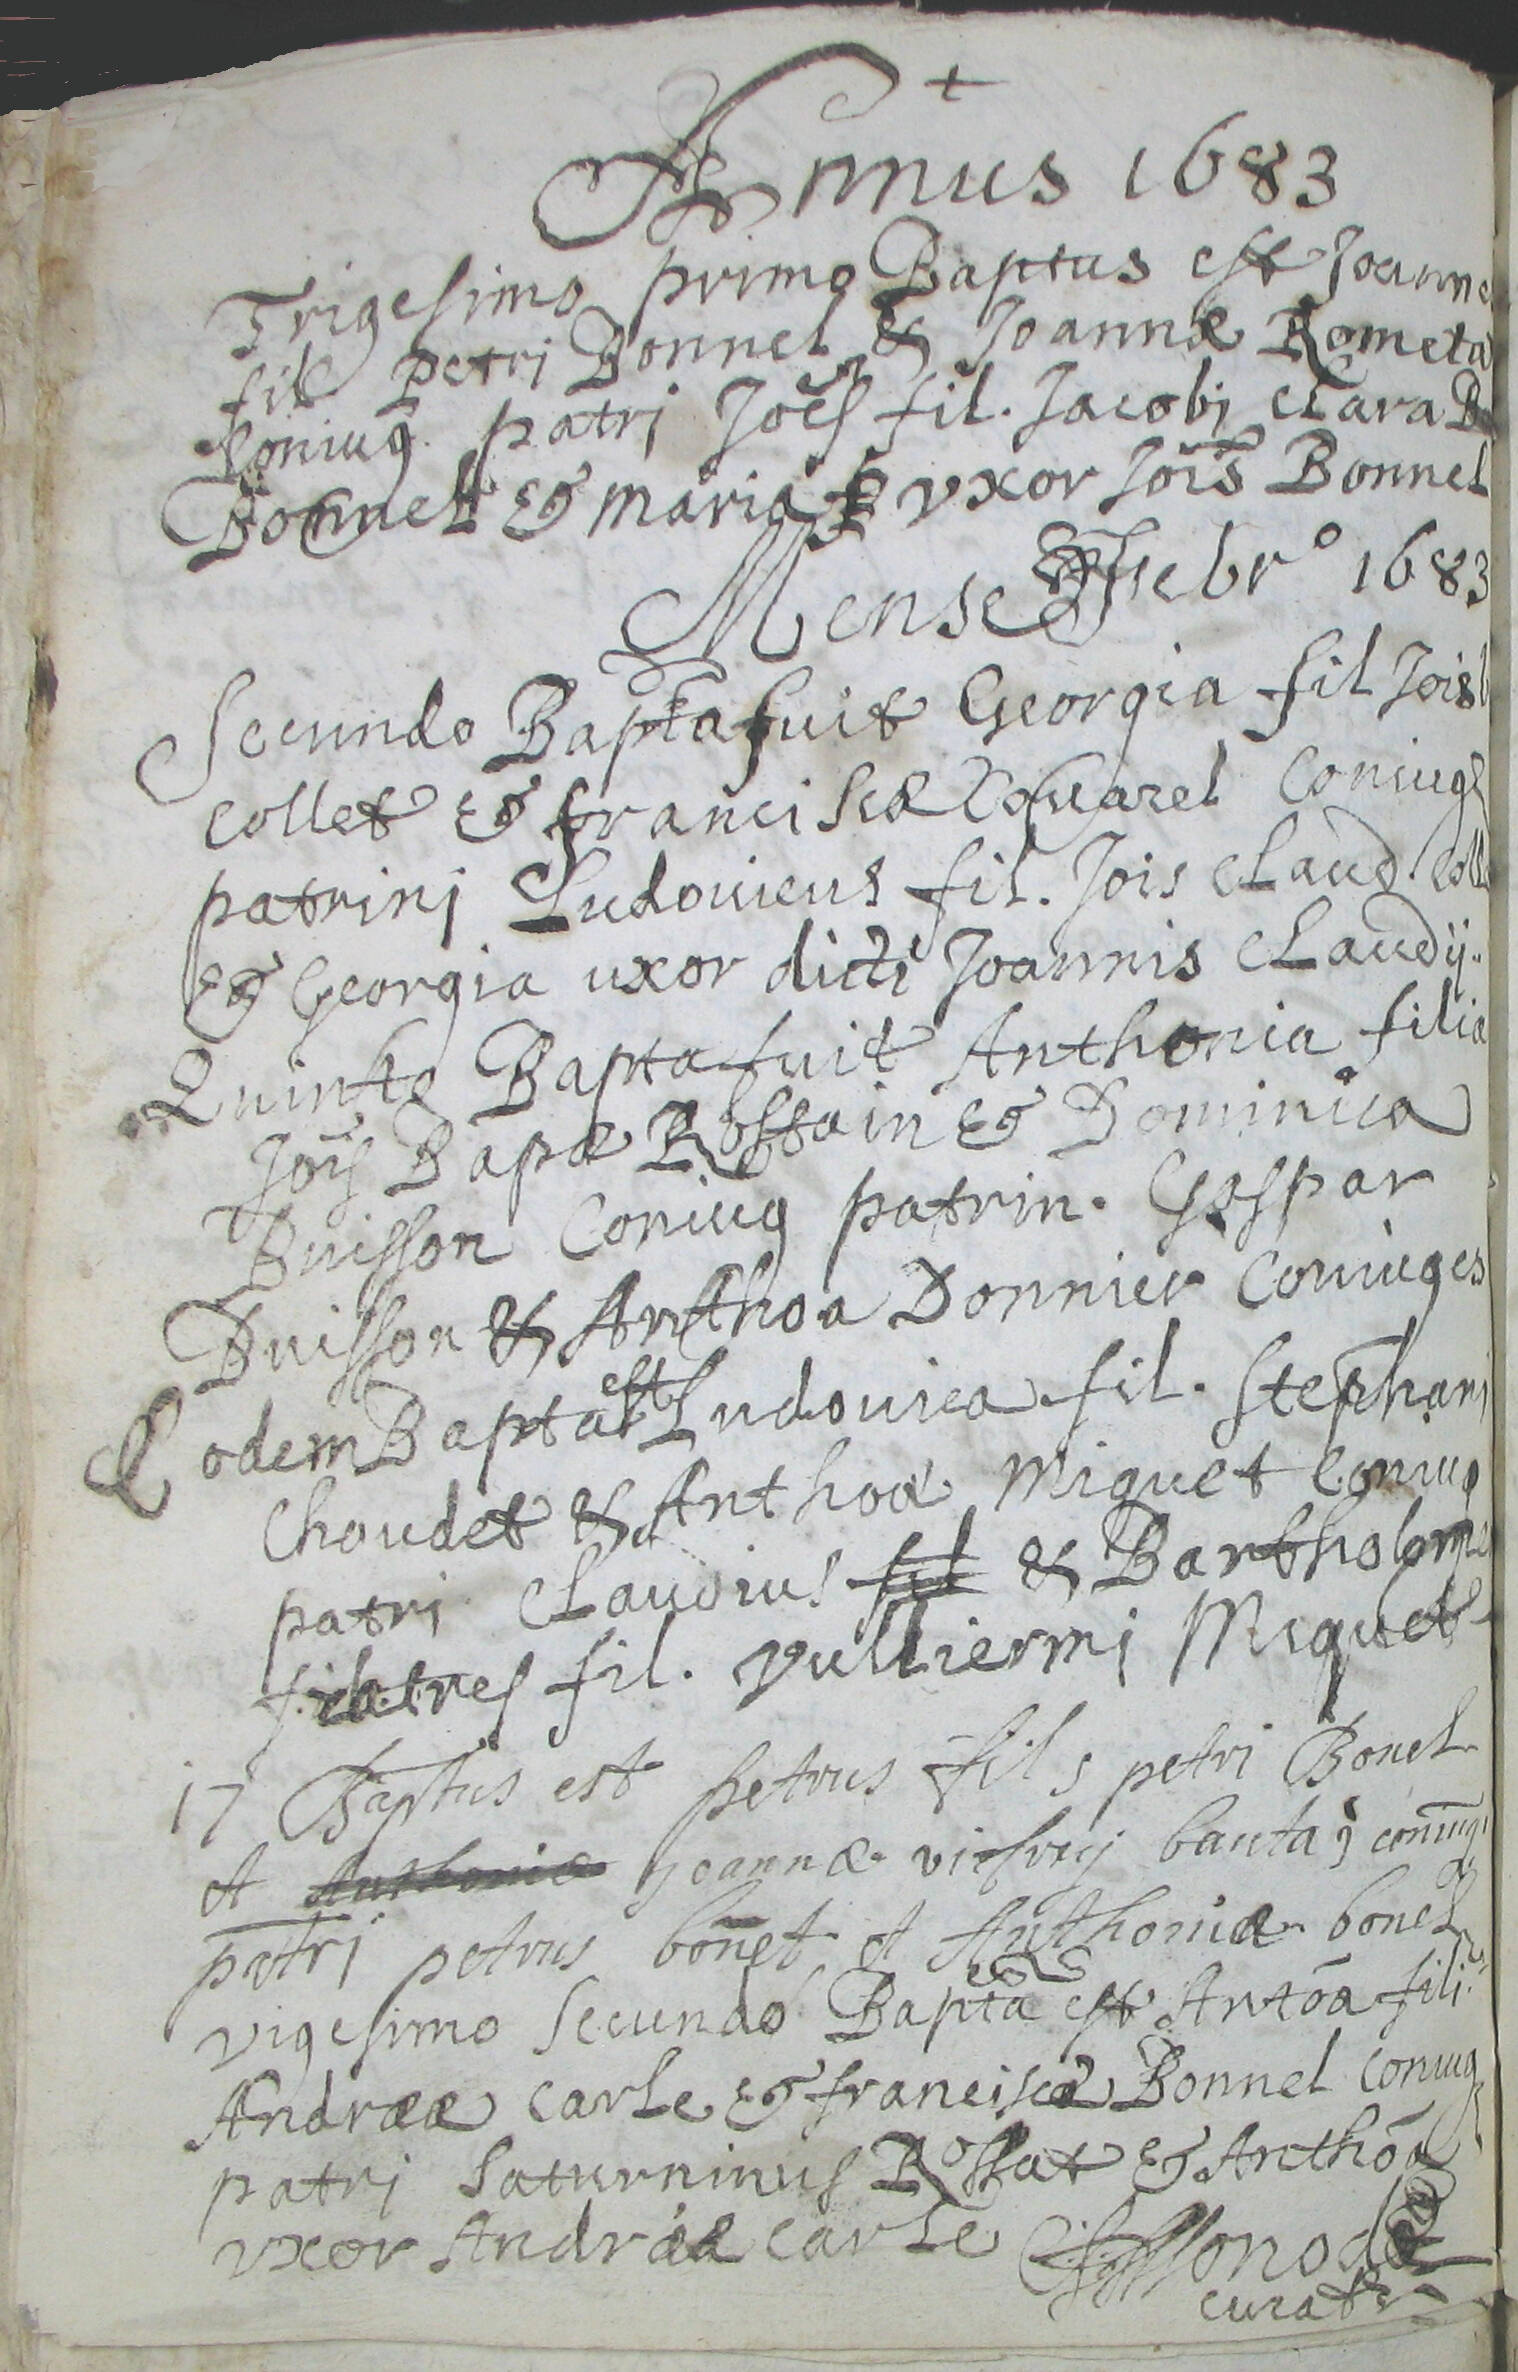 +
Annus 1683
Trigesimo primo Baptus est Joanne
fil petri Bonnel & Joannæ Rometa
Coniug patrj Joes fil. Jacobj Clara
Bonnel & maria uxor Jois Bonnel
Mense Febr° 1683
Secundo Bapta fuit Georgia fil Jois
Collet & franciscæ Couarel Coniug
patrinj Ludouicus fil. Jois Claud Coll
& Georgia uxor dicti Joannis Claudij.
Quinto Bapta fuit Anthonia filia
Jois Bapæ Rossain & Dominica
Buisson Coniug patrin. Gaspar
Buisson & Anthoa Donnier Coniuges
Eodem Bapta est Ludouica fil. Stephanj
Choudet & Anthoæ Miquet Coniug
patrj Claudius fil & Bartholome
fratres fil. Vulliermj Miquet
17 Baptus est petrus fils petri Bonel
et Anthoniæ Joannæ bauta coniug
patrj petrus bonet et Anthoniæ bonel
vigesimo Secundo Bapta est Antoa fili
Andreæ Carle & franciscæ Bonnel Coniug
patrj Saturninus Rossat & Anthoa
uxor Andræa Carle
curat